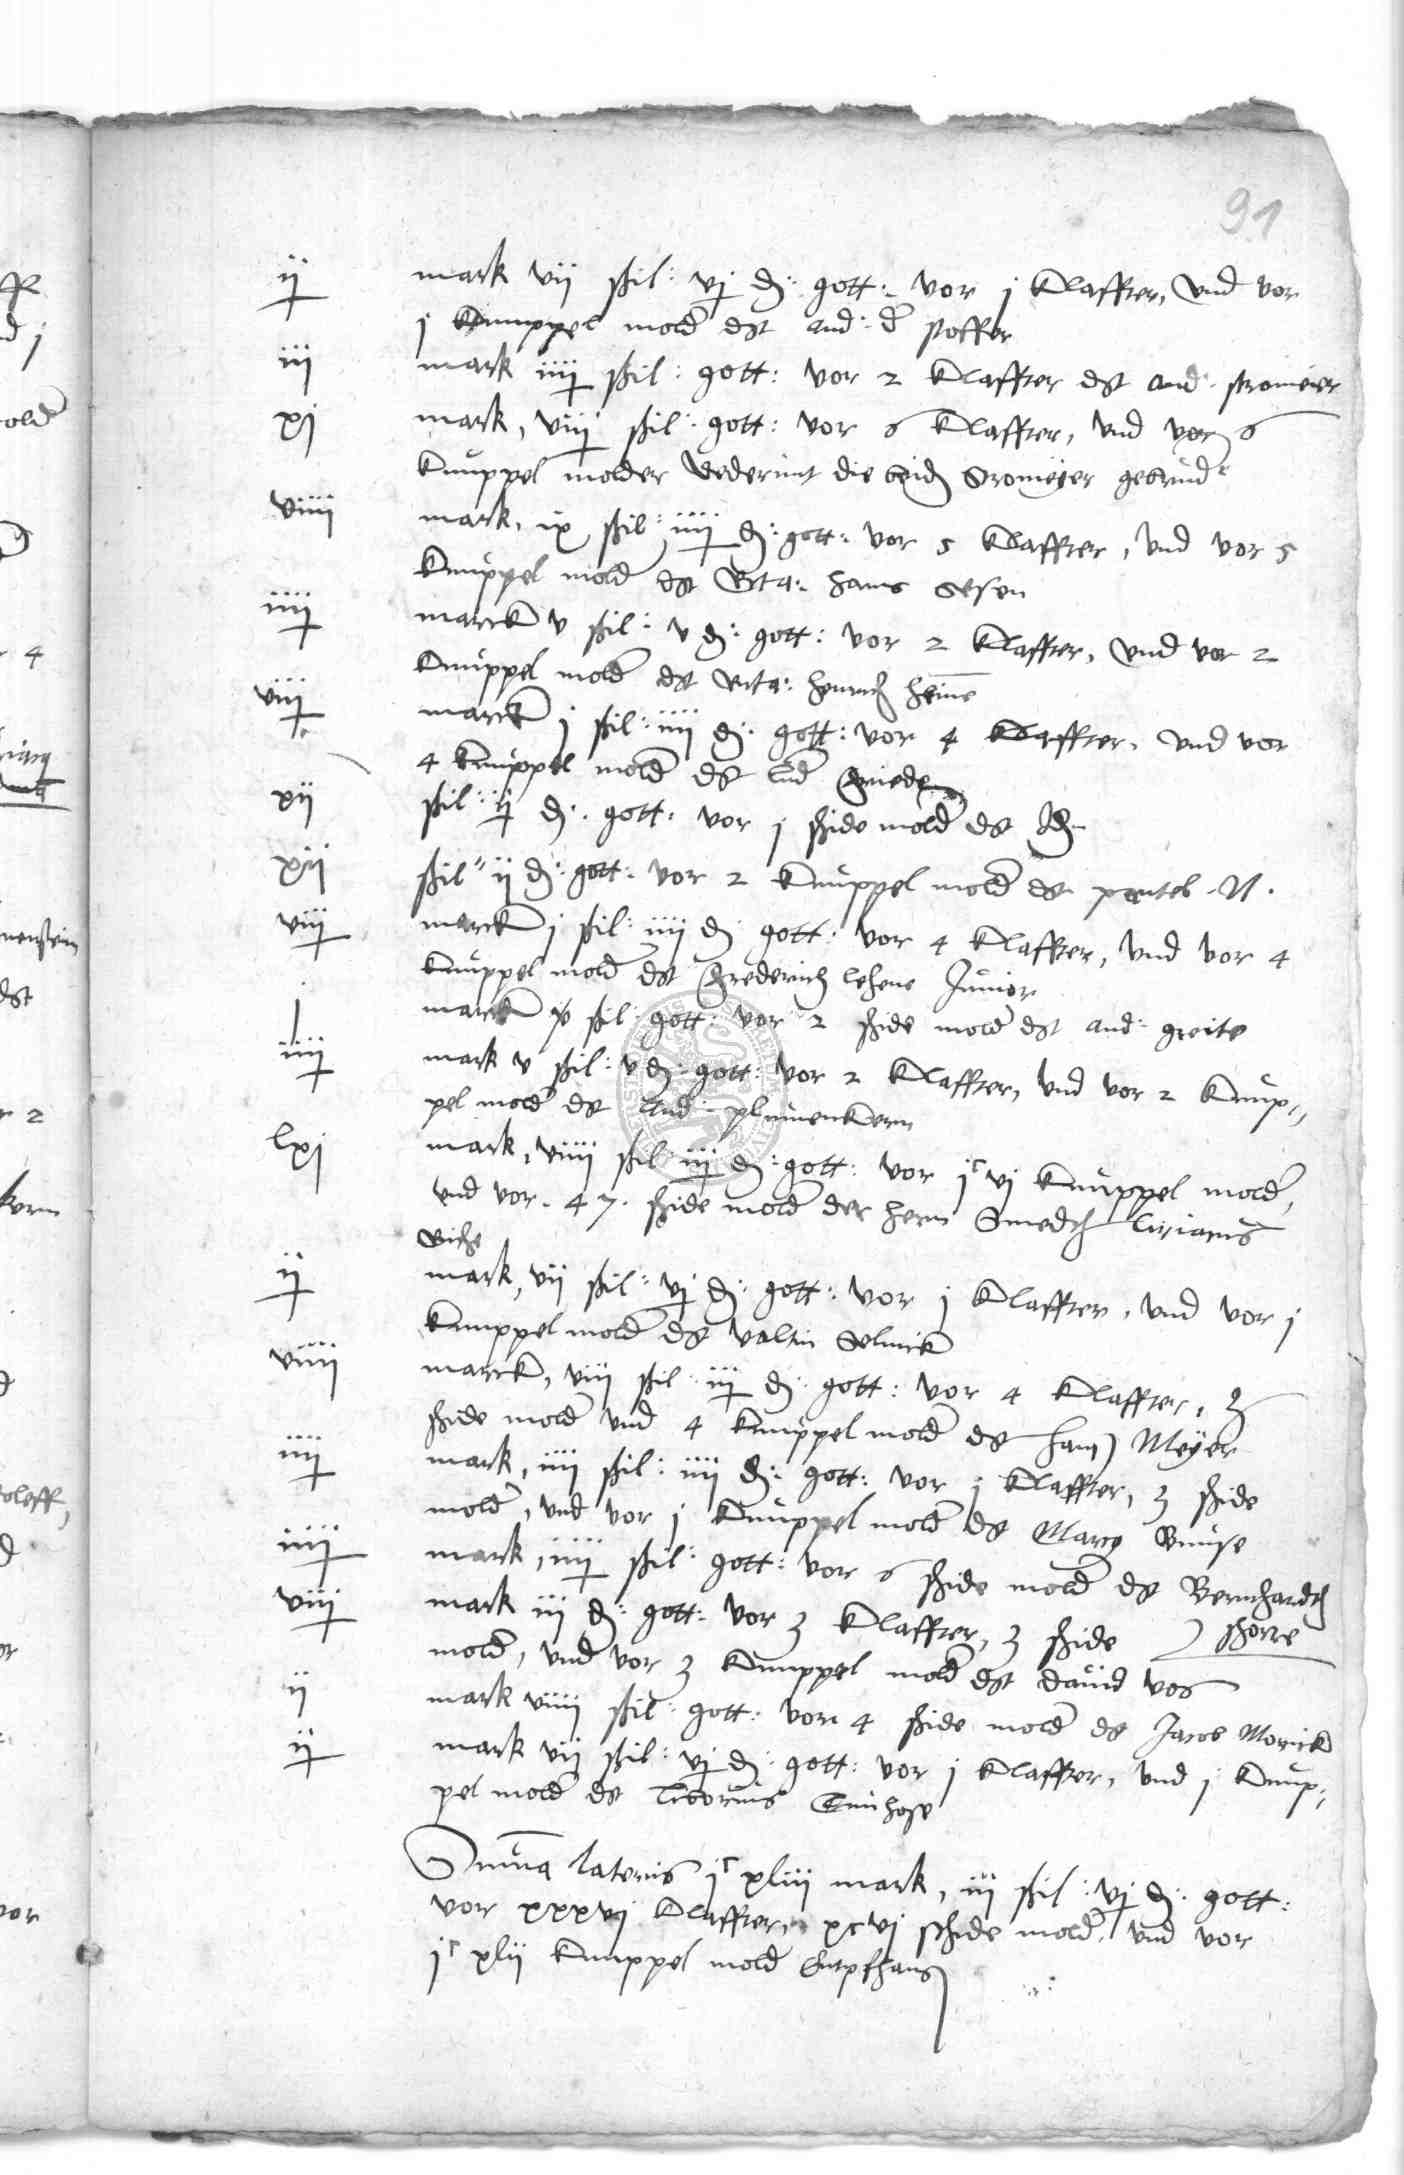 91
ij mark vij ßil: vj d: gott: vor j Klaffter, vnd vor
j Knuppel mold dst and: d stoffer
iij mark iiij ßil: gott: vor 2 Klaffter dst and: stromeier
xj mark, viij ßil: gott: vor 6 Klaffter, vnd vor 6
Knuppel molder wederumt die beid Stromeyer gebrud
viiij mark, ix ßil: iiij d: gott: vor 5 Klaffter, vnd vor 5
Knuppel mold dst Hans
iiij marck v ßil: v d: gott: vor 2 Klaffter, vnd vor 2
Knuppel mold dst Henrich Heine
viij marck j ßil: iiij d: gott: vor 4 Klaffter, vnd vor
4 Knuppel mold dst
xij ßil: ij d: gott: vor j shide mold dst
xij ßil: ij d: gott: vor 2 Knuppel mold dst
viij marck j ßil: iiij d: gott: vor 4 Klaffter, vnd vor 4
Knuppel mold dst Frederich lehene Junior
j marck ßil: gott: vor 2 shide mold dst and: greite
iiij mark v ßil: v d: gott: vor 2 Klaffter, vnd vor 2 Knup-
pel mold dst And: plumenkern
lxj mark, viiij ßil: iij d: gott: vor jc vj Knuppel mold,
vnd vor 47 shide mold der hern Smedth
ij mark, vij ßil: vj d: gott: vor j Klaffter, vnd vor j
Knuppel mold dst valtin
viiij marck, viij ßil: iij d: gott: vor 4 Klaffter, 3
shide mold vnd 4 Knuppel mold dst Hans Meyer
iiij mark, iiij ßil: iiij d: gott: vor j Klaffter, 3 shide
mold, vnd vor j Knuppel mold dst Marcy
iiij mark, iiij ßil: gott: vor 6 shide mold dst Bernhardth
shorre
viij mark iij d: gott: vor 3 Klaffter, 3 shide
mold, vnd vor 3 Knuppel mold dst David vos
ij mark viiij ßil: gott: vor 4 shide mold dst Jacob Morick
ij mark vij ßil: vj d: gott: vor j Klaffter, vnd j Knup-
pel mold dst
Summa lateris jc xliij mark, iij ßil: vj d: gott:
vor xxxvj Klaffter, xcvj shide mold, vnd vor
jc xlij Knuppel mold Entpfhans